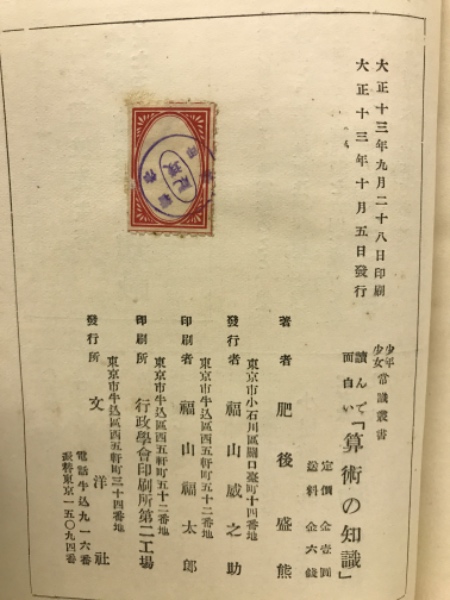 大正十三年九月二十八日印刷
大正十三年十月五日發行
少年少女常識叢書
讀んで面白い「算術の知識」
定價金壹圓
送料金六錢
著者 肥後盛熊
東京市小石川區關口臺町十四番地
發行者 福山威之助
東京市牛込區西五軒町五十二番地
印刷者 福山福太郎
東京市牛込區西五軒町五十二番地
印刷所 行政學會印刷所第二工場
東京市牛込區西五軒町三十四番地
發行所 文洋社
電話牛込九一六番
振替東京一五〇九四番